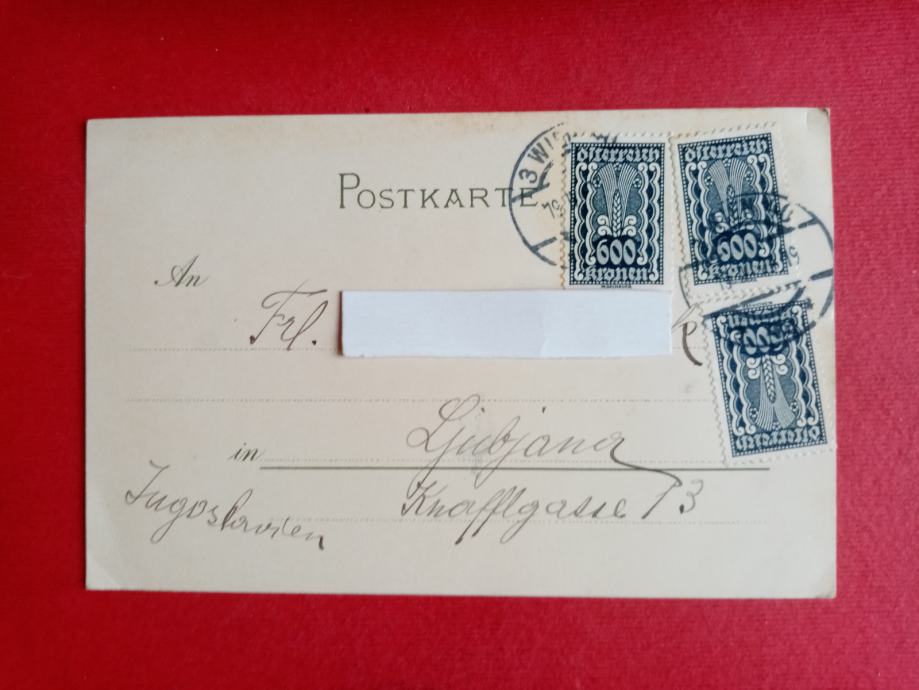 POSTKARTE
3 WI
österreich
600
kronen
österreich
600
kronen
österreich
600
kronen
An
Frl.
in Ljubjana
Jugoslavien
Knafflgasse 13